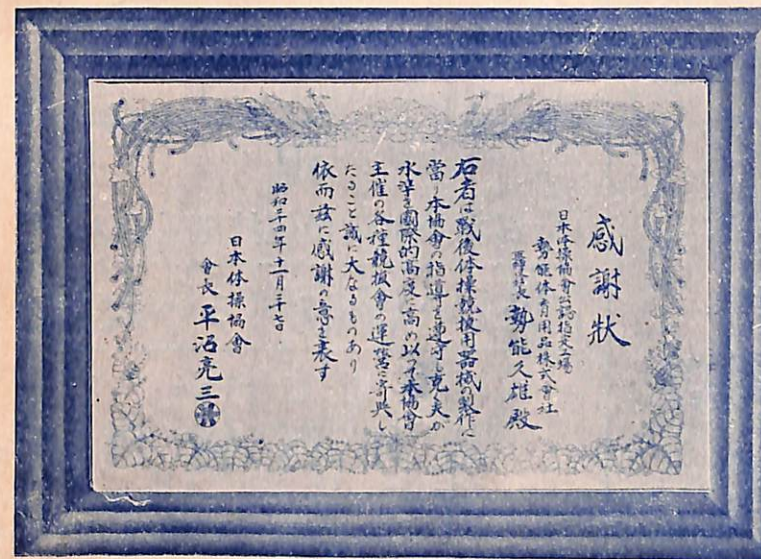 感謝狀
日本体操協會公認指定工場
勢能体育用品株式會社
勢能久雄殿
右者は戰後体操競技用器械の製作に
當り本協會の指導を遵守し克く夫が
水準を國際的高度に高め以つて本協會
主催の各種競技會の運営に寄与し
たること誠に大なるものあり
依而茲に感謝の意を表す
昭和二十四年十一月三十日
日本体操協會
會長 平沼亮三